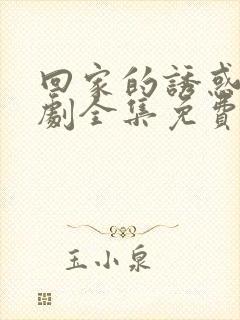 回家的誘惑
劇全集免費
玉小泉